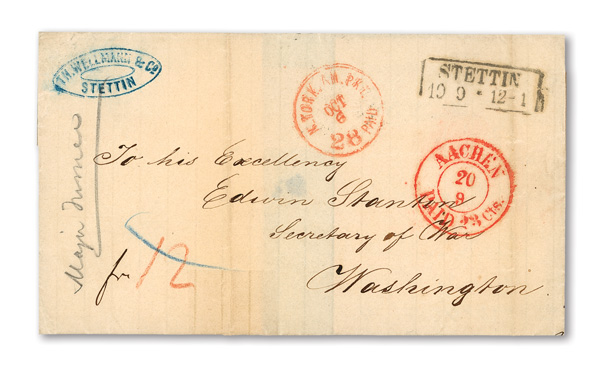 TH. WELLMANN & Co
STETTIN
N. YORK. AM. PKT.
OCT
6
28
PAID
STETTIN
19 9 * 12-1
AACHEN
20
9
Cts.
To his Excellency
Edwin Stanton
Secretary of War
Washington.
Major
fr. 12